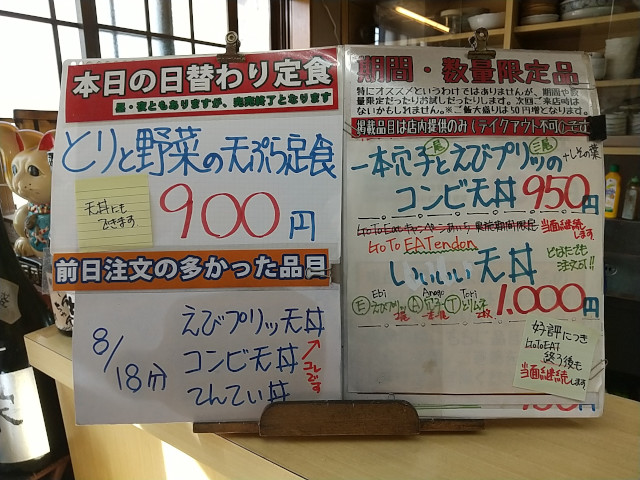 本日の日替わり定食
品・衣ともありますが、完売終了となります
とりと野菜の天ぷら定食
天丼にも
できます
900円
前日注文の多かった品目
8/18分
えびプリッ天丼
コンビ天丼
てんてい丼
コレです
期間・数量限定品
特にオススメというわけではありませんが、期間や数
量限定だったりお試しだったりします。次回ご来店時は
ないかもしれません。※ご飯大盛りは50円増となります。
掲載品目は店内提供のみ(テイクアウト不可)です
一本穴子とえびプリッの
二尾
+しその葉
コンビ天丼 950円
GoToEatキャンペーンあいち 実施期間限定
当面継続
します。
GoTo EATendon
いいいい天丼
どなたでも
注文可!!
Ebi Anago Tori
Eえびプリッ A穴子 Tとりム子
2尾 一本 2枚
1.000円
好評につき
GoToEAT
終う後も
当面継続します